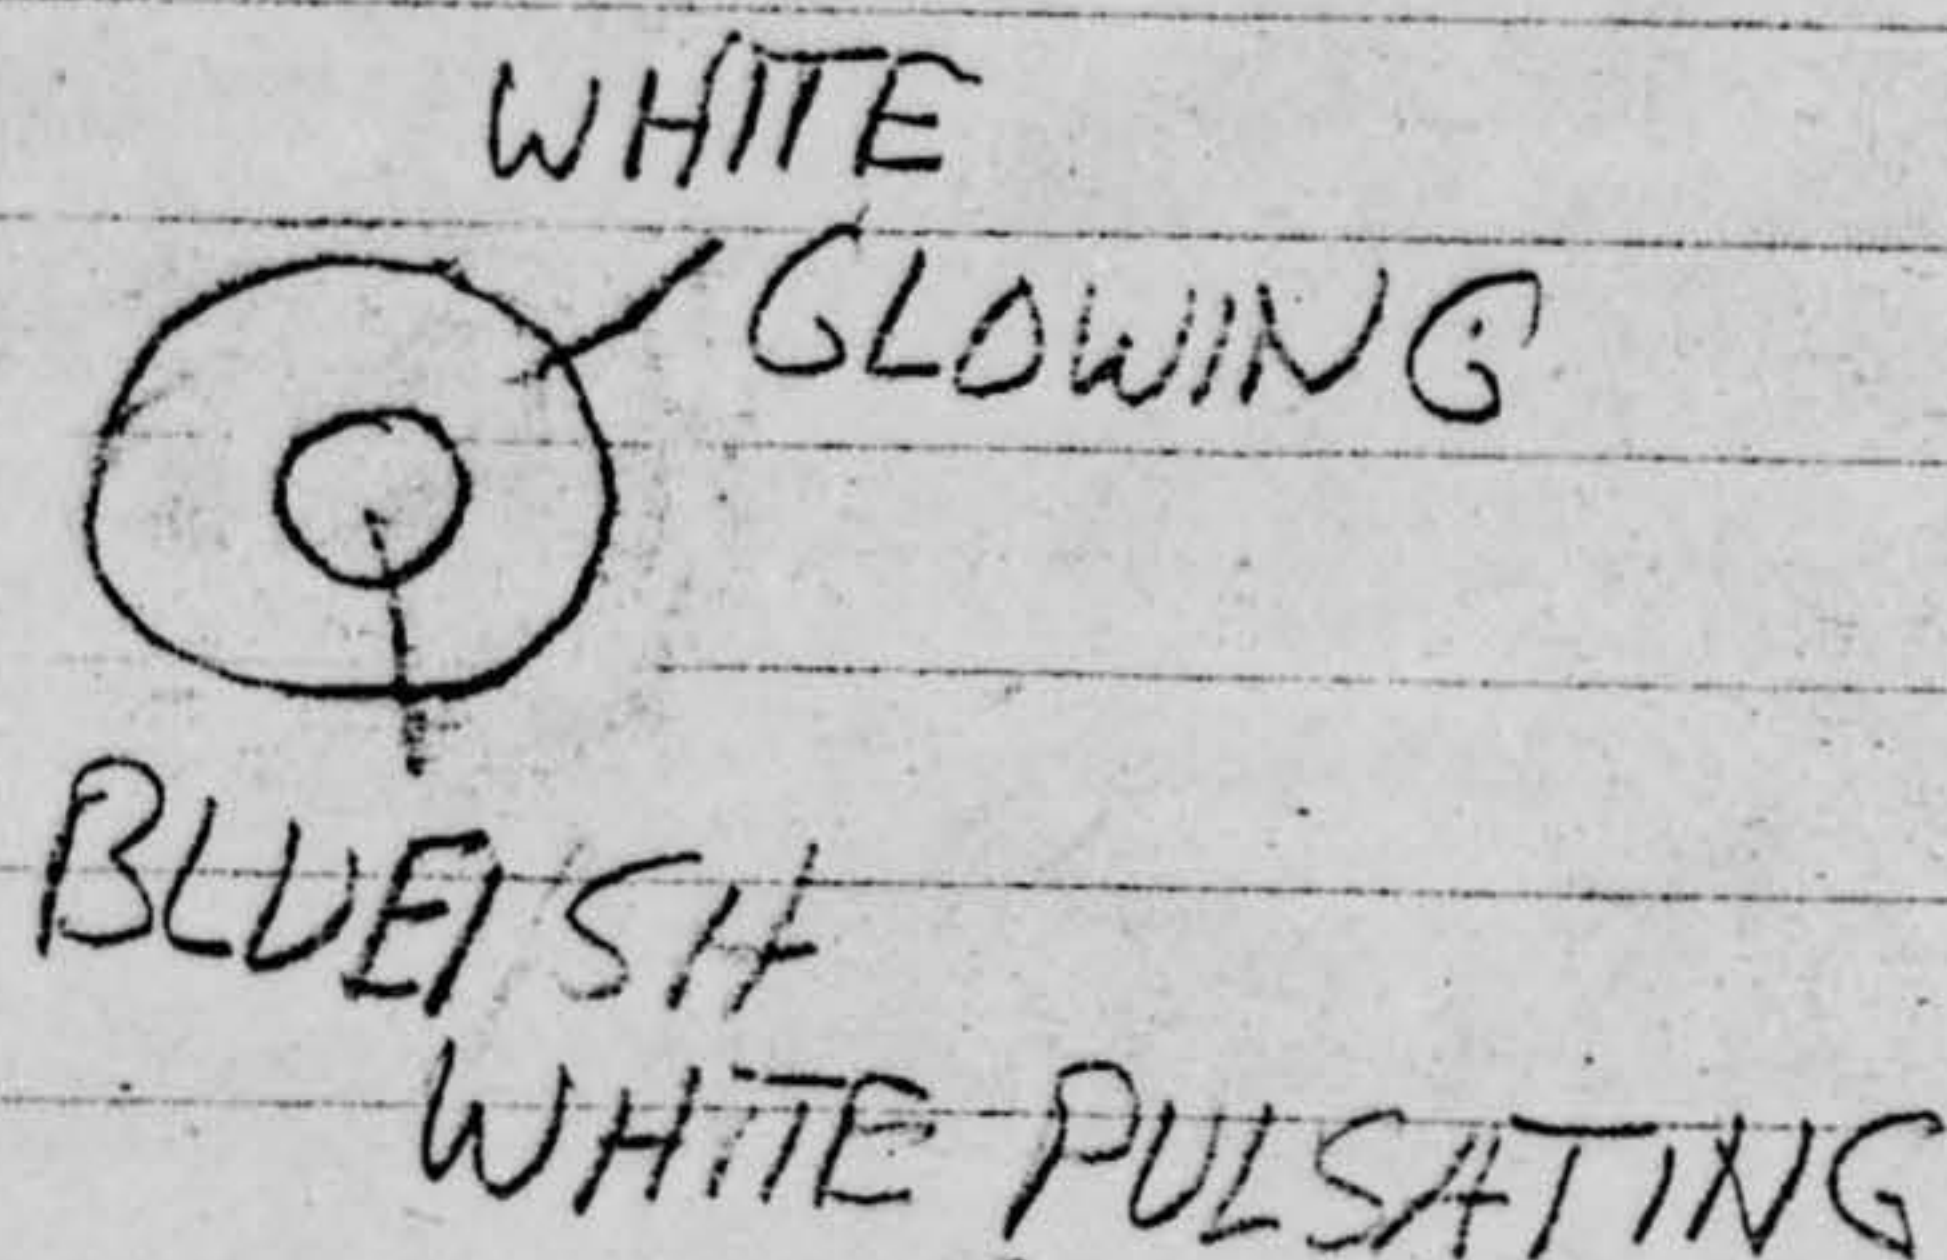 WHITE
GLOWING
BLUEISH
WHITE PULSATING